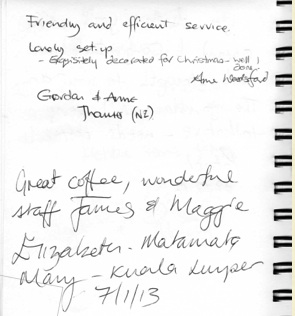 Friendly and efficient service.
Lovely set-up
- Exquisitely decorated for Christmas - well done!
Gordon & Anne
Thanks (NZ)
Great coffee, wonderful
staff James & Maggie
Elizabeth - Matamata
Mary - Kuala Lumper
7/1/13